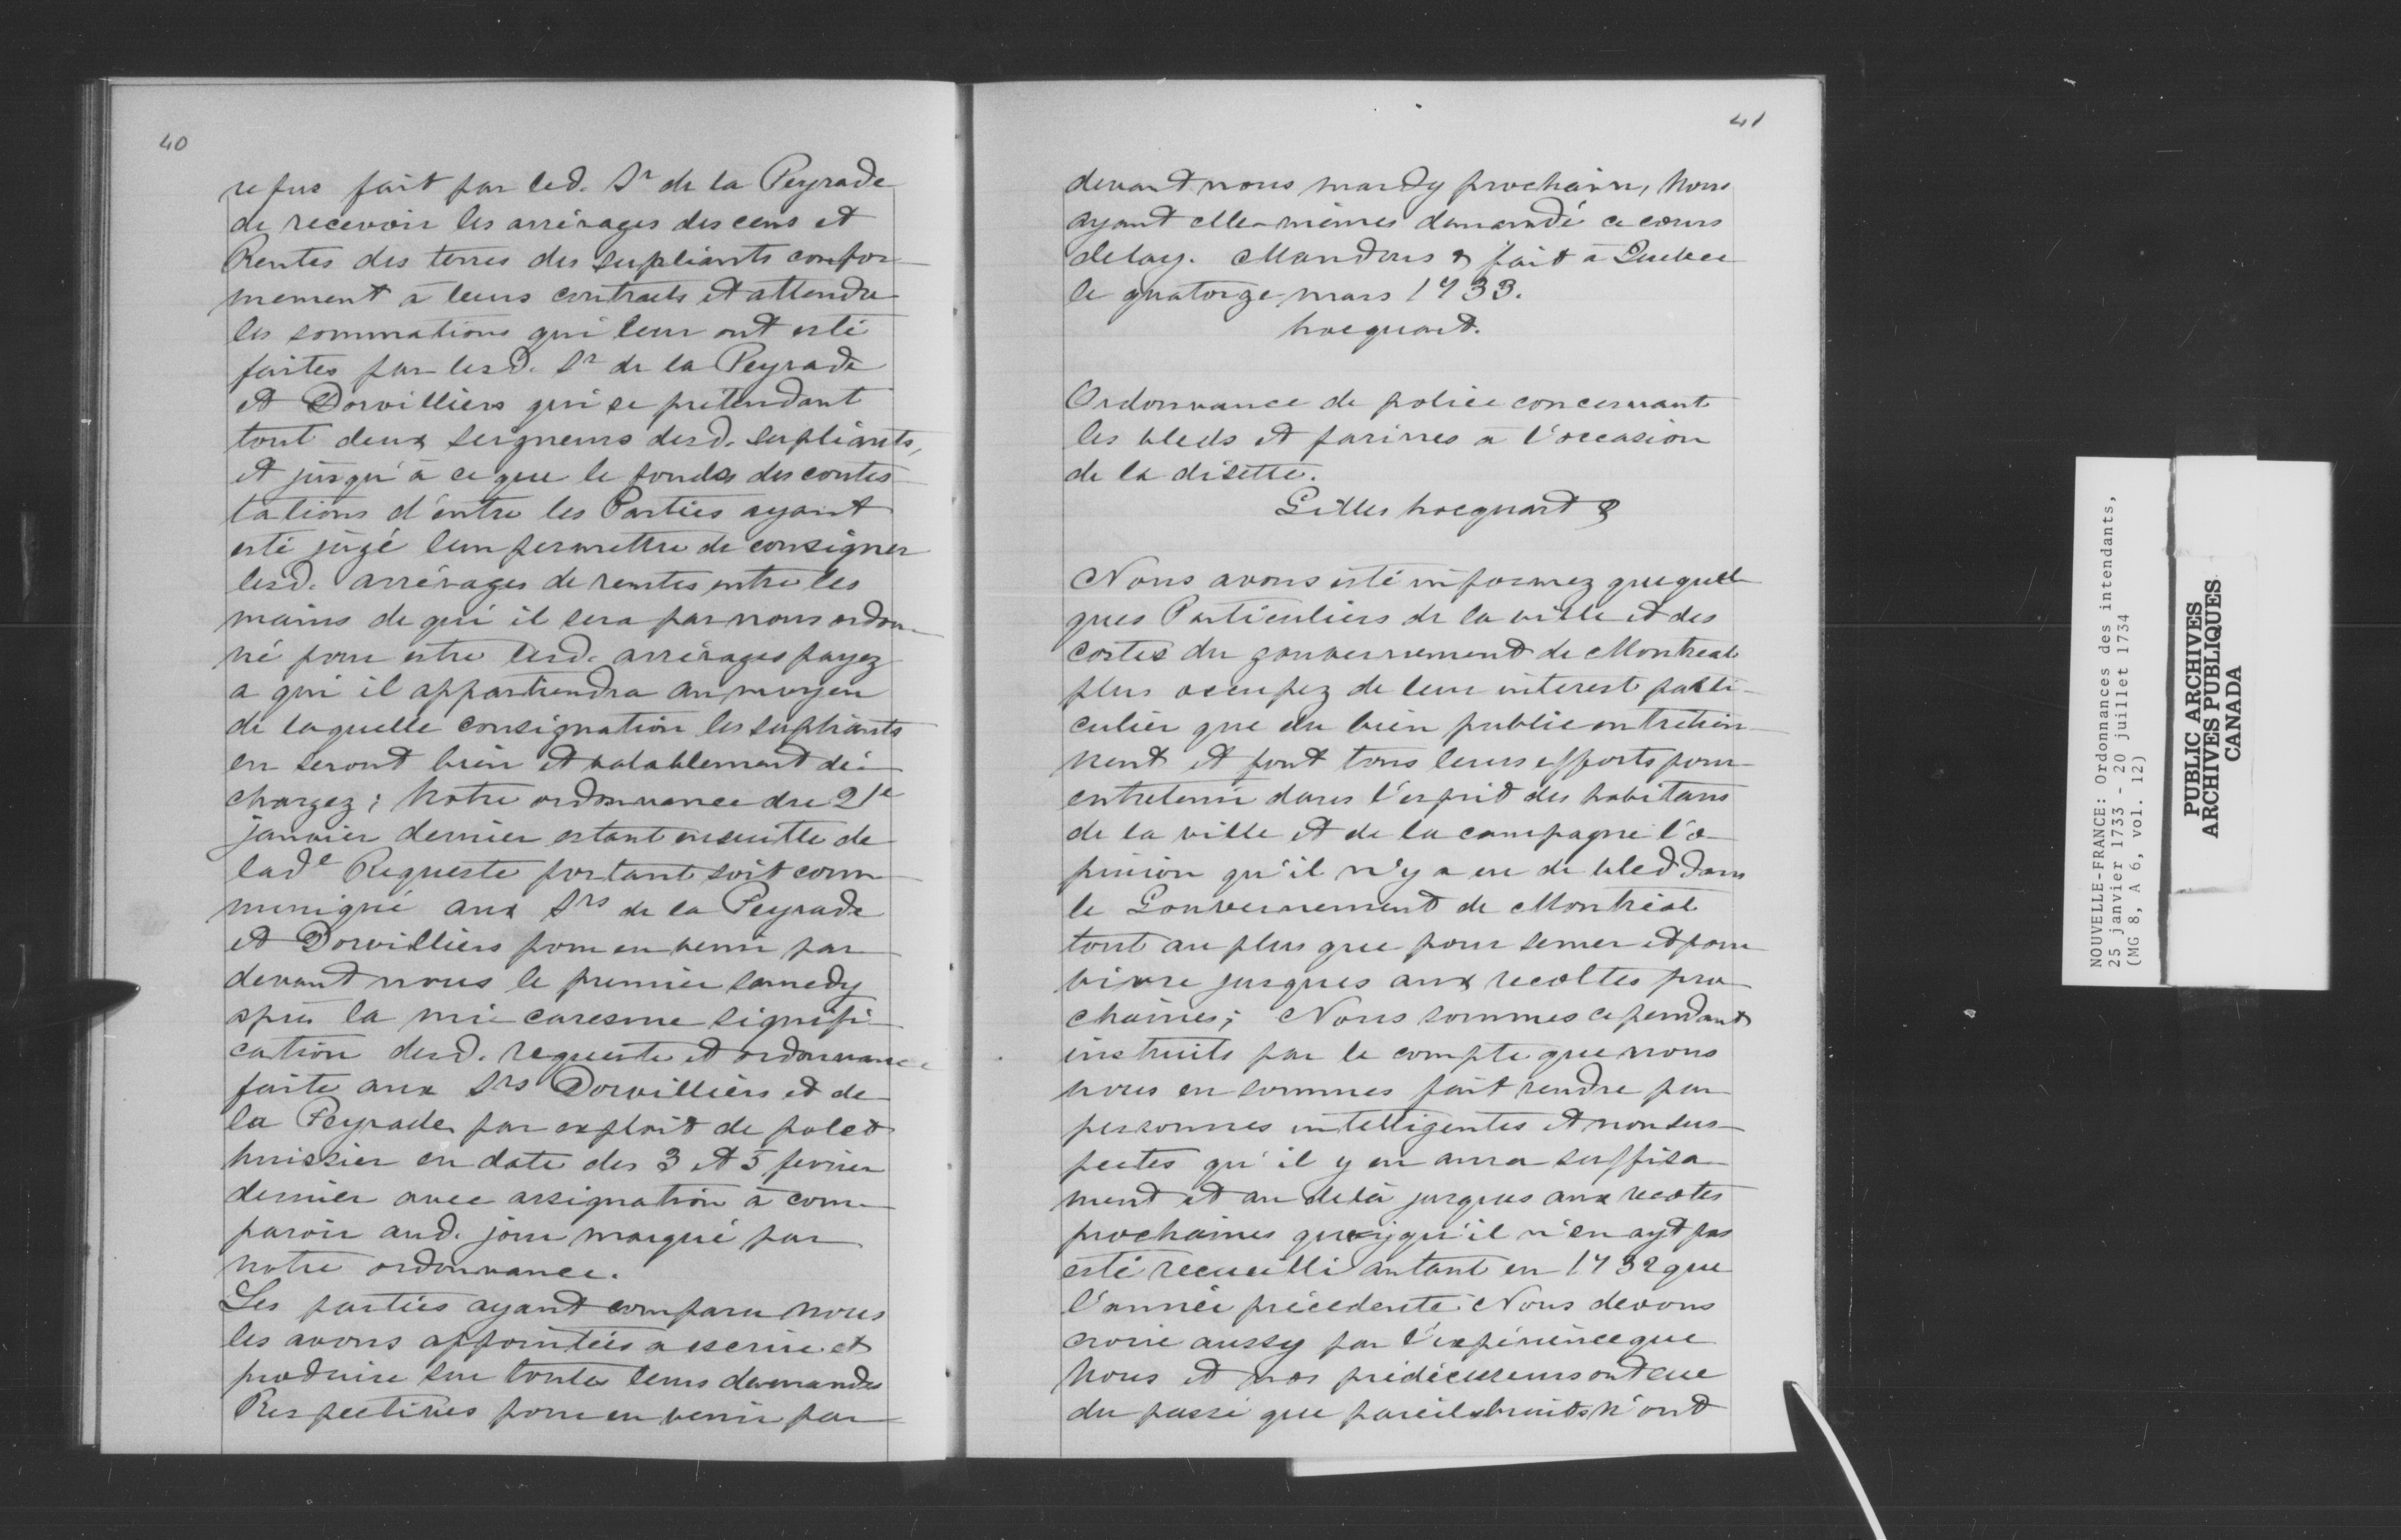 40
refus fait par led. Sr de la Peyrade
de recevoir les arrérages des cens et
Rentes des terres des supliants confor-
mement à leurs contrats et attendu
les sommations qui leur ont esté
faites par lesd. Sr de la Peyrade
et Dorvilliers qui se prétendant
tout deux seigneurs desd. supliants,
et jusqu'à ce que le fonds des contes-
tations d'entre les Parties ayant
esté jugé leur permettre de consigner
lesd. arrérages de rentes entre les
mains de qui il sera par nous ordon-
né pour estre lesd. arrérages payez
a qui il appartiendra au moyen
de laquelle consignation les supliants
en seront bien et valablement dé-
chargez; Notre ordonnance du 21e
janvier dernier estant ensuitte de
lade Requeste portant soit com-
muniqué aux Srs de la Peyrade
et Dorvilliers pour en venir par
devant nous le premier samedy
après la mi-caresme signifi-
cation desd. requeste et ordonnance
faite aux Srs Dorvilliers et de
la Peyrade par exploit de polet
huissier en date des 3 et 5 fevrier
dernier avec assignation à com-
paroir aud. jour marqué par
notre ordonnance.
Les parties ayant comparu nous
les avons appointées a escrire et
produire sur toutes leurs demandes
Respectives pour en venir par
41
devant nous mardy prochain, Nous
ayant elles-mêmes demandé ce cours
delay. Mandons & fait à Quebec
le quatorze mars 1733.
hocquart.
Ordonnance de police concernant
les bleds et farines à l'occasion
de la disette.
Gilles hocquart &
Nous avons esté informez que quel-
ques Particuliers de la ville et des
costes du gouvernement de Montreal
plus occupez de leur interest parti-
culier que du bien public entretien-
nent et font tous leurs efforts pour
entretenir dans l'esprit des habitans
de la ville et de la campagne l'o-
pinion qu'il n'y a eu de bled dans
le Gouvernement de Montréal
tout au plus que pour semer et pour
vivre jusques aux recoltes pro-
chaines; Nous sommes cependant
instruits par le compte que nous
nous en sommes fait rendre par
personnes intelligentes et non sus-
pectes qu'il y en aura suffisa-
ment et au delà jusques aux recotes
prochaines quoyqu'il n'en ayt pas
esté recueilli autant en 1732 que
l'année précedente. Nous devons
croire aussy par l'expérience que
Nous et nos prédécesseurs ont eue
du passé que pareils bruits n'ont
NOUVELLE-FRANCE: Ordonnances des intendants,
25 janvier 1733 - 20 juillet 1734
(MG 8, A 6, vol. 12)
PUBLIC ARCHIVES
ARCHIVES PUBLIQUES
CANADA